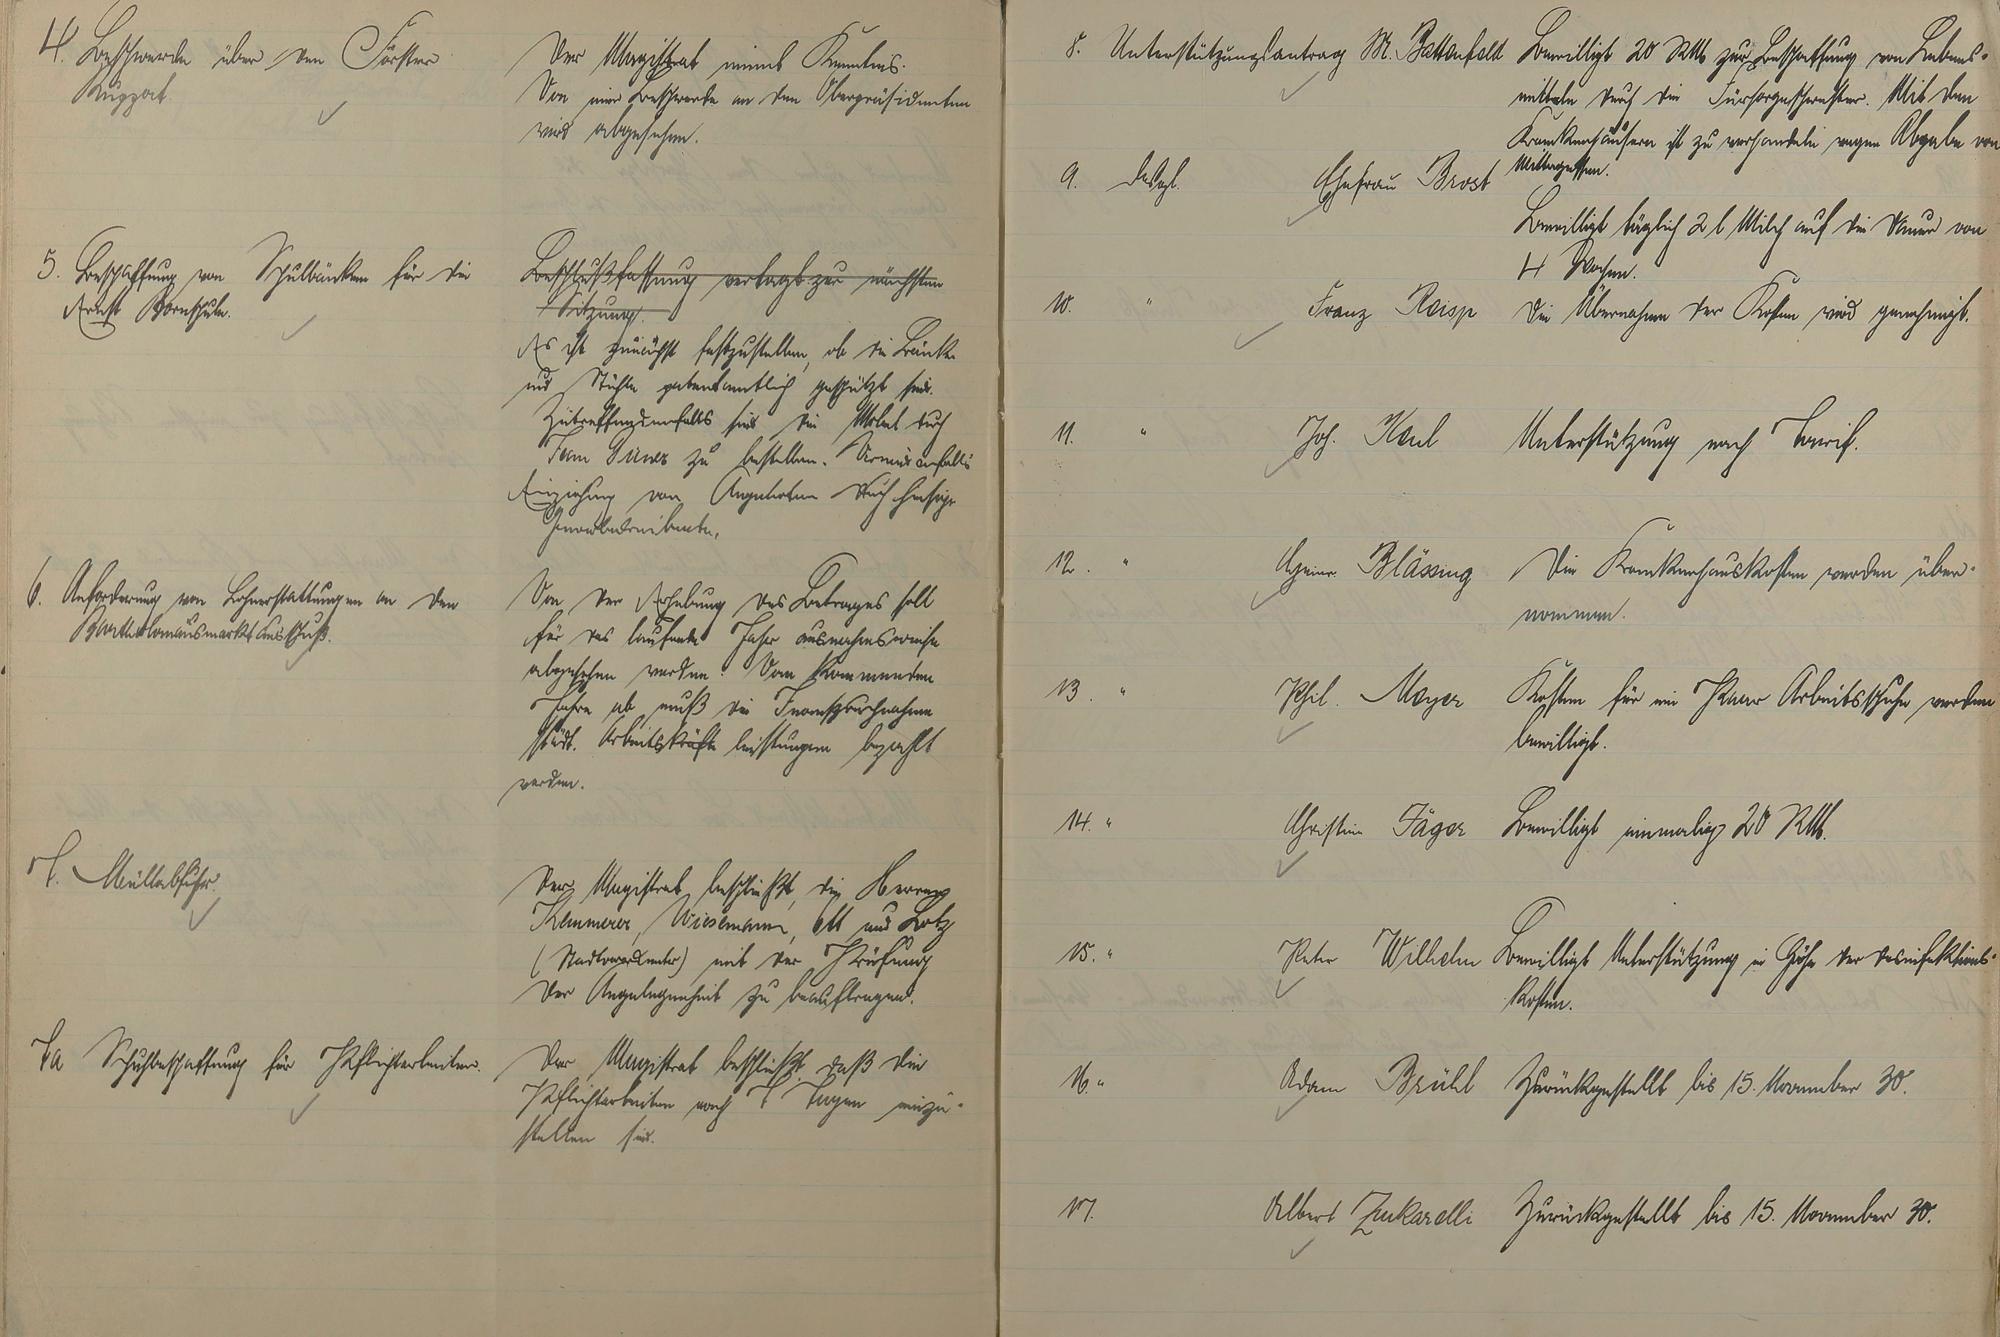 4. Beschwerde über den Förster
Ruppat.
Der Magistrat nimmt Kenntnis.
Von einer Beschwerde an den Oberpräsidenten
wird abgesehen.
5. Beschaffung von Schulbänken für die
Ernst Bornschule.
Beschlußfassung vertagt zur nächsten
Sitzung.
Es ist zunächst festzustellen, ob die Bänke
und Stühle patentamtlich geschützt sind.
Zutreffendenfalls sind die Möbel durch
zu bestellen.
Einziehung von Angeboten durch hiesige
Gewerbetreibende.
6. Anforderung von Lohnerstattungen an den
Bartholomäusmarktausschuß.
Von der Erhebung des Betrages soll
für das laufende Jahr ausnahmsweise
abgesehen werden. Vom kommenden
Jahre ab muß die Inanspruchnahme
städt. Arbeitskräfte leistungen bezahlt
werden.
7. Müllabfuhr.
Der Magistrat beschließt, die Herren
Kemmerer, Wiesemann, Ott und Lotz
(Stadtverordneter) mit der Prüfung
der Angelegenheit zu beauftragen.
7a Schuhbeschaffung für Pflichtarbeiter.
Der Magistrat beschließt, daß die
Pflichtarbeiten nach 8 Tagen einzu-
stellen sind.
8. Unterstützungsantrag M. Battenfeld
Bewilligt 20 RM zur Beschaffung von Lebens-
mitteln durch die Fürsorgeschwester. Mit den
Krankenhäusern ist zu verhandeln wegen Abgabe von
Mittagessen.
9. desgl. Ehefrau Brost
Bewilligt täglich 2 l Milch auf die Dauer von
4 Wochen.
10. " Franz Reisp Die Übernahme der Kosten wird genehmigt.
11. " Joh. Keul Unterstützung nach Tarif.
12. " Blässing Die Krankenhauskosten werden über-
nommen.
13. " Phil. Meyer Kosten für ein Paar Arbeitsschuhe werden
bewilligt.
14. " Christine Jäger Bewilligt einmalig 20 RM.
15. " Peter Wilhelm Bewilligt Unterstützung in Höhe der Desinfektions-
kosten.
16. " Adam Brühl Zurückgestellt bis 15. November 30.
17. Albert Zukarelli Zurückgestellt bis 15. November 30.